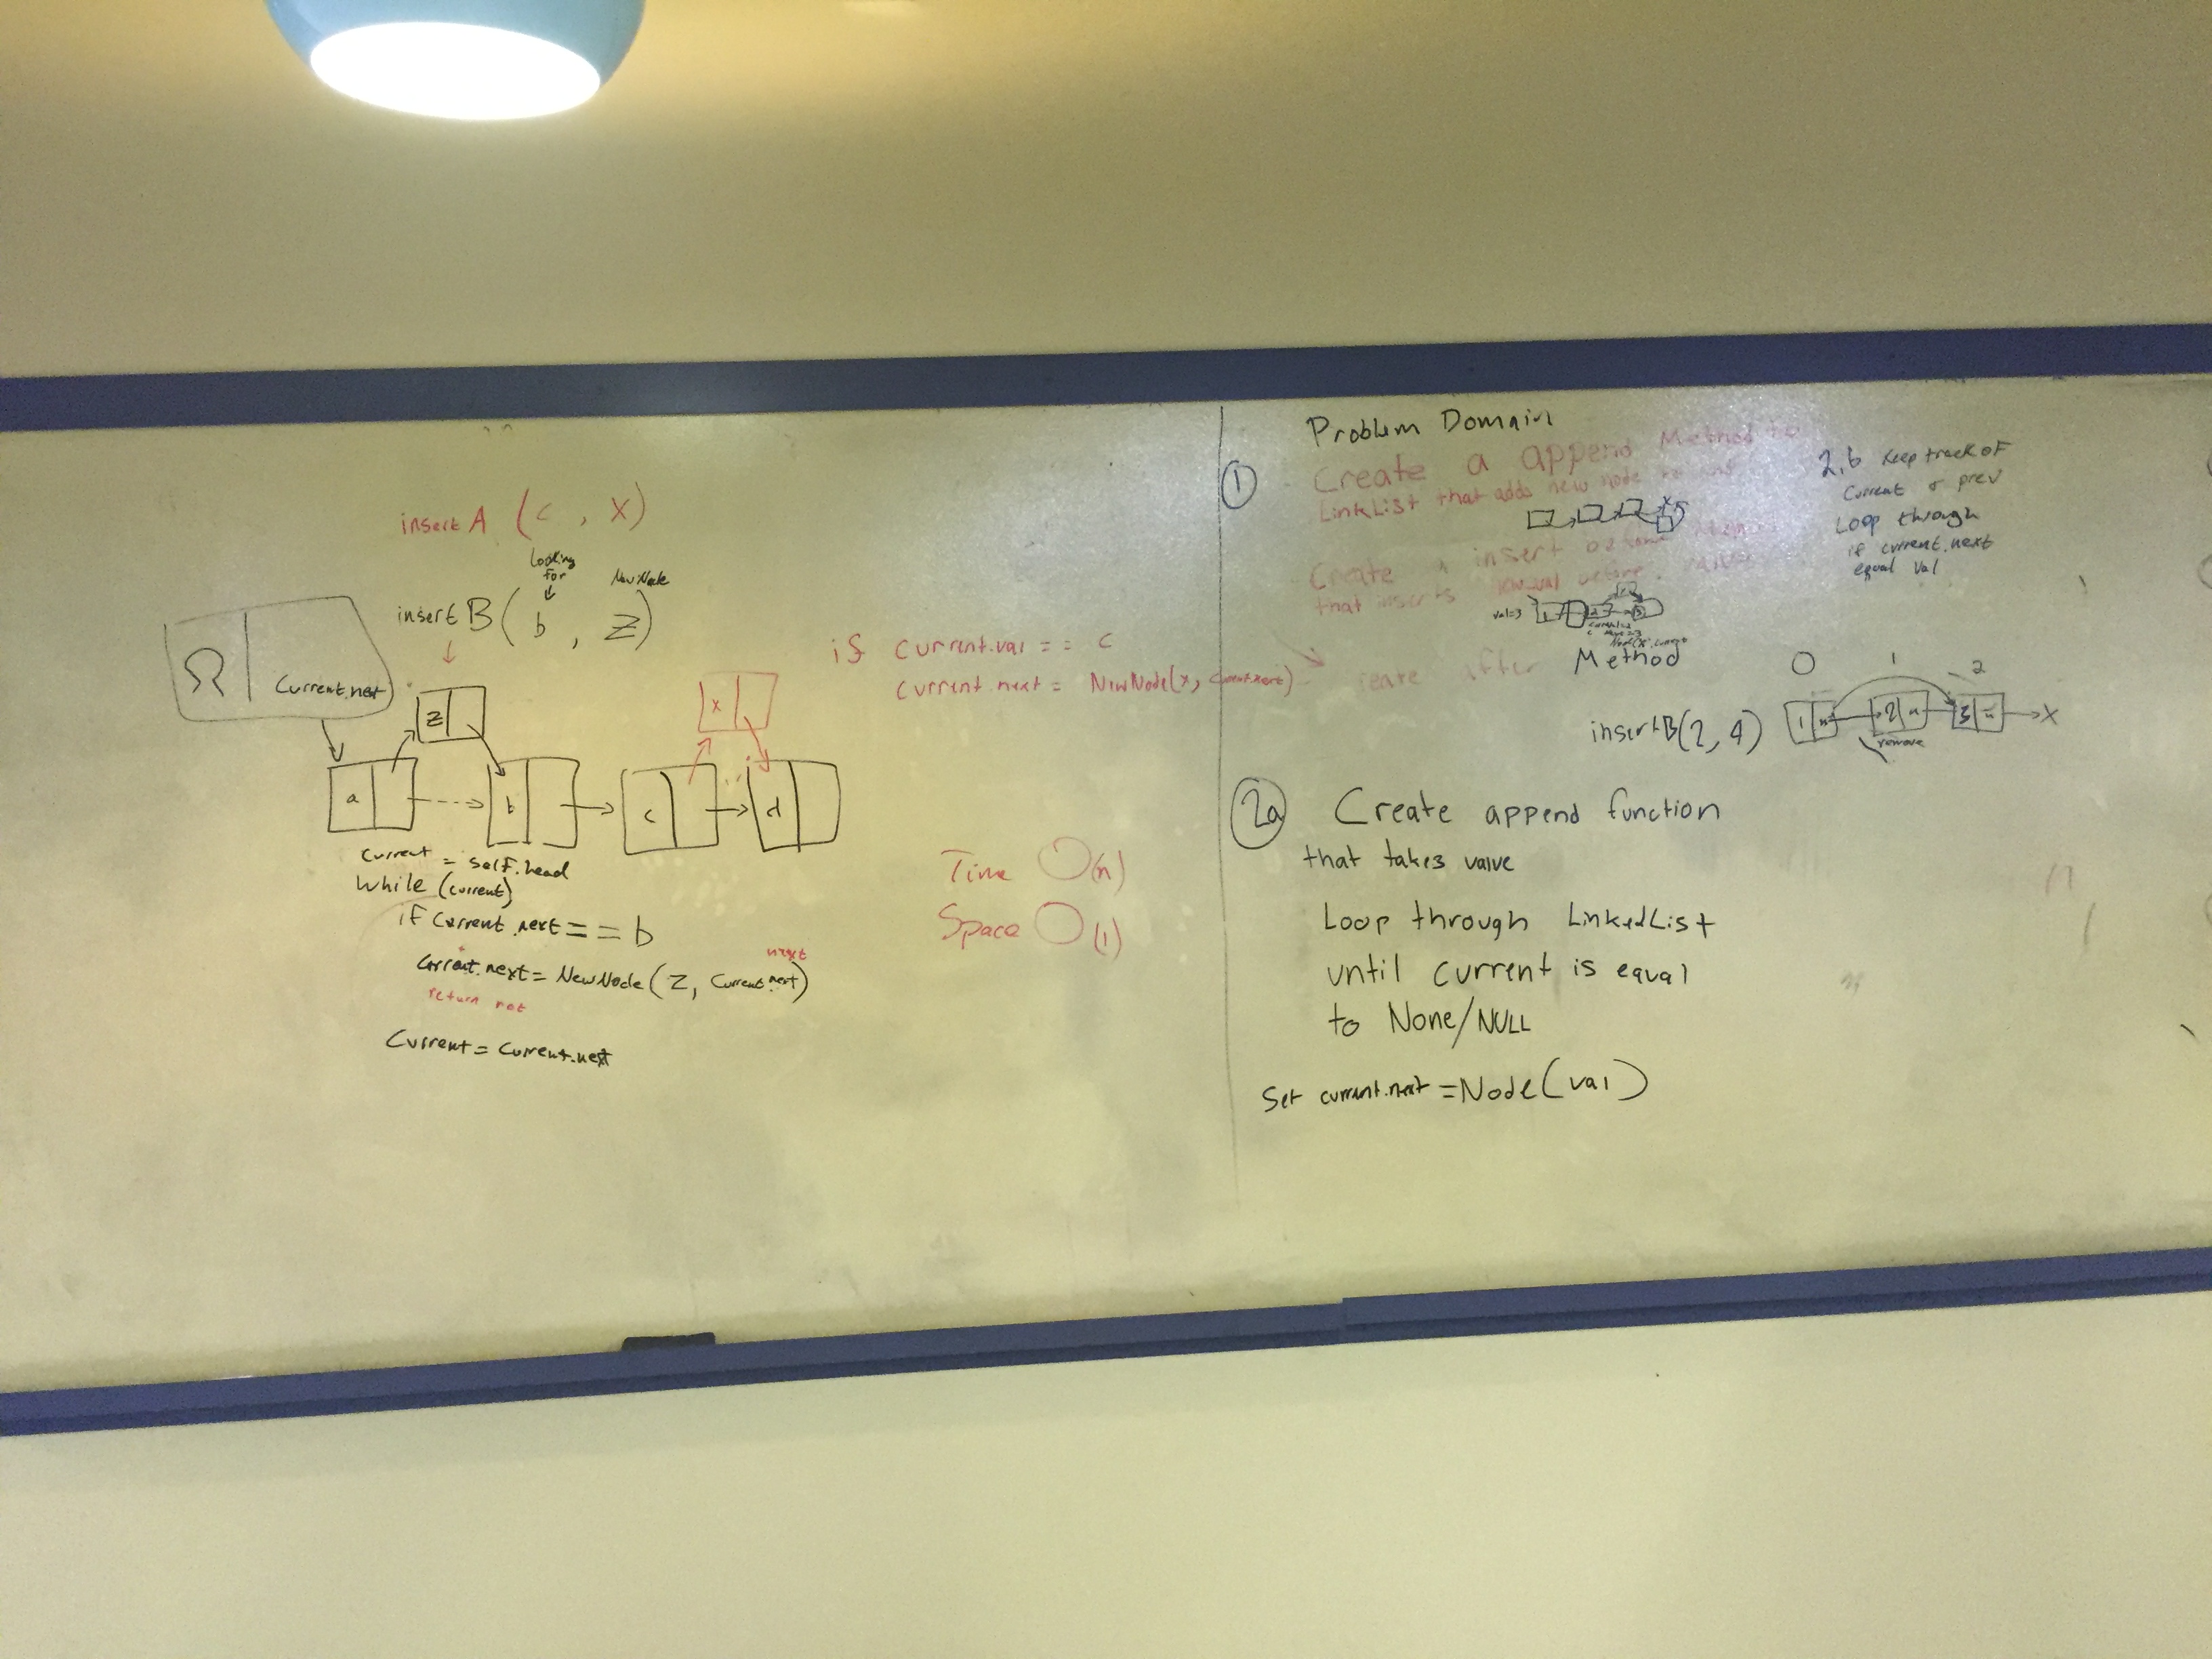 insert A (c, x)
Looking
for
New Node
insert B (b, z)
Ω
Current.next
z
x
a
b
c
d
if current.val == c
current.next = NewNode(x, current.next)
Current = self.head
While (current)
if current.next == b
next
Current.next = NewNode(z, current.next)
return
Current = current.next
Time O(n)
Space O(1)
Problem Domain
1
Create a append Method to
LinkList that adds new node to
Create insert
that inserts newval before
val=3
after Method
2.b Keep track of
current & prev
Loop through
if current.next
equal val
0 1 2
insertB(2, 4)
1 2 3 x
remove
2a Create append function
that takes value
Loop through LinkedList
until current is equal
to None/NULL
Set current.next = Node(val)